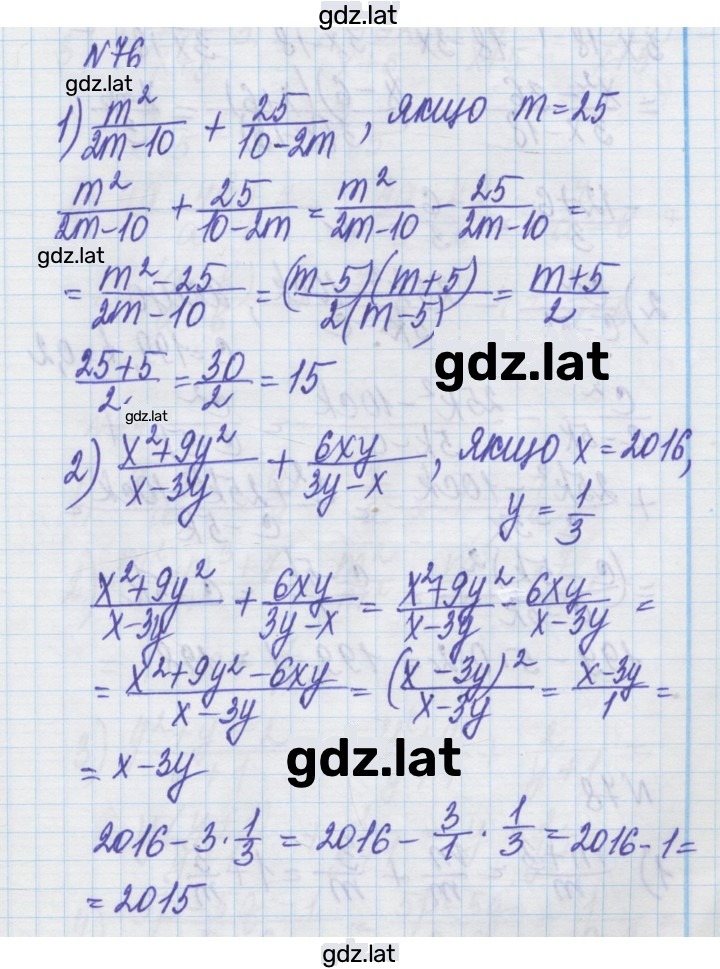 gdz.lat
N 76
gdz.lat
1) m²/(2m-10) + 25/(10-2m), якщо m=25
m²/(2m-10) + 25/(10-2m) = m²/(2m-10) - 25/(2m-10) =
gdz.lat
= (m²-25)/(2m-10) = (m-5)(m+5)/2(m-5) = (m+5)/2
gdz.lat
(25+5)/2 = 30/2 = 15
gdz.lat
2) (x²+9y²)/(x-3y) + 6xy/(3y-x), якщо x=2016,
y = 1/3
(x²+9y²)/(x-3y) + 6xy/(3y-x) = (x²+9y²)/(x-3y) - 6xy/(x-3y) =
= (x²+9y²-6xy)/(x-3y) = (x-3y)²/(x-3y) = (x-3y)/1 =
= x-3y
gdz.lat
2016-3·1/3 = 2016 - 3/1 · 1/3 = 2016-1=
= 2015
gdz.lat